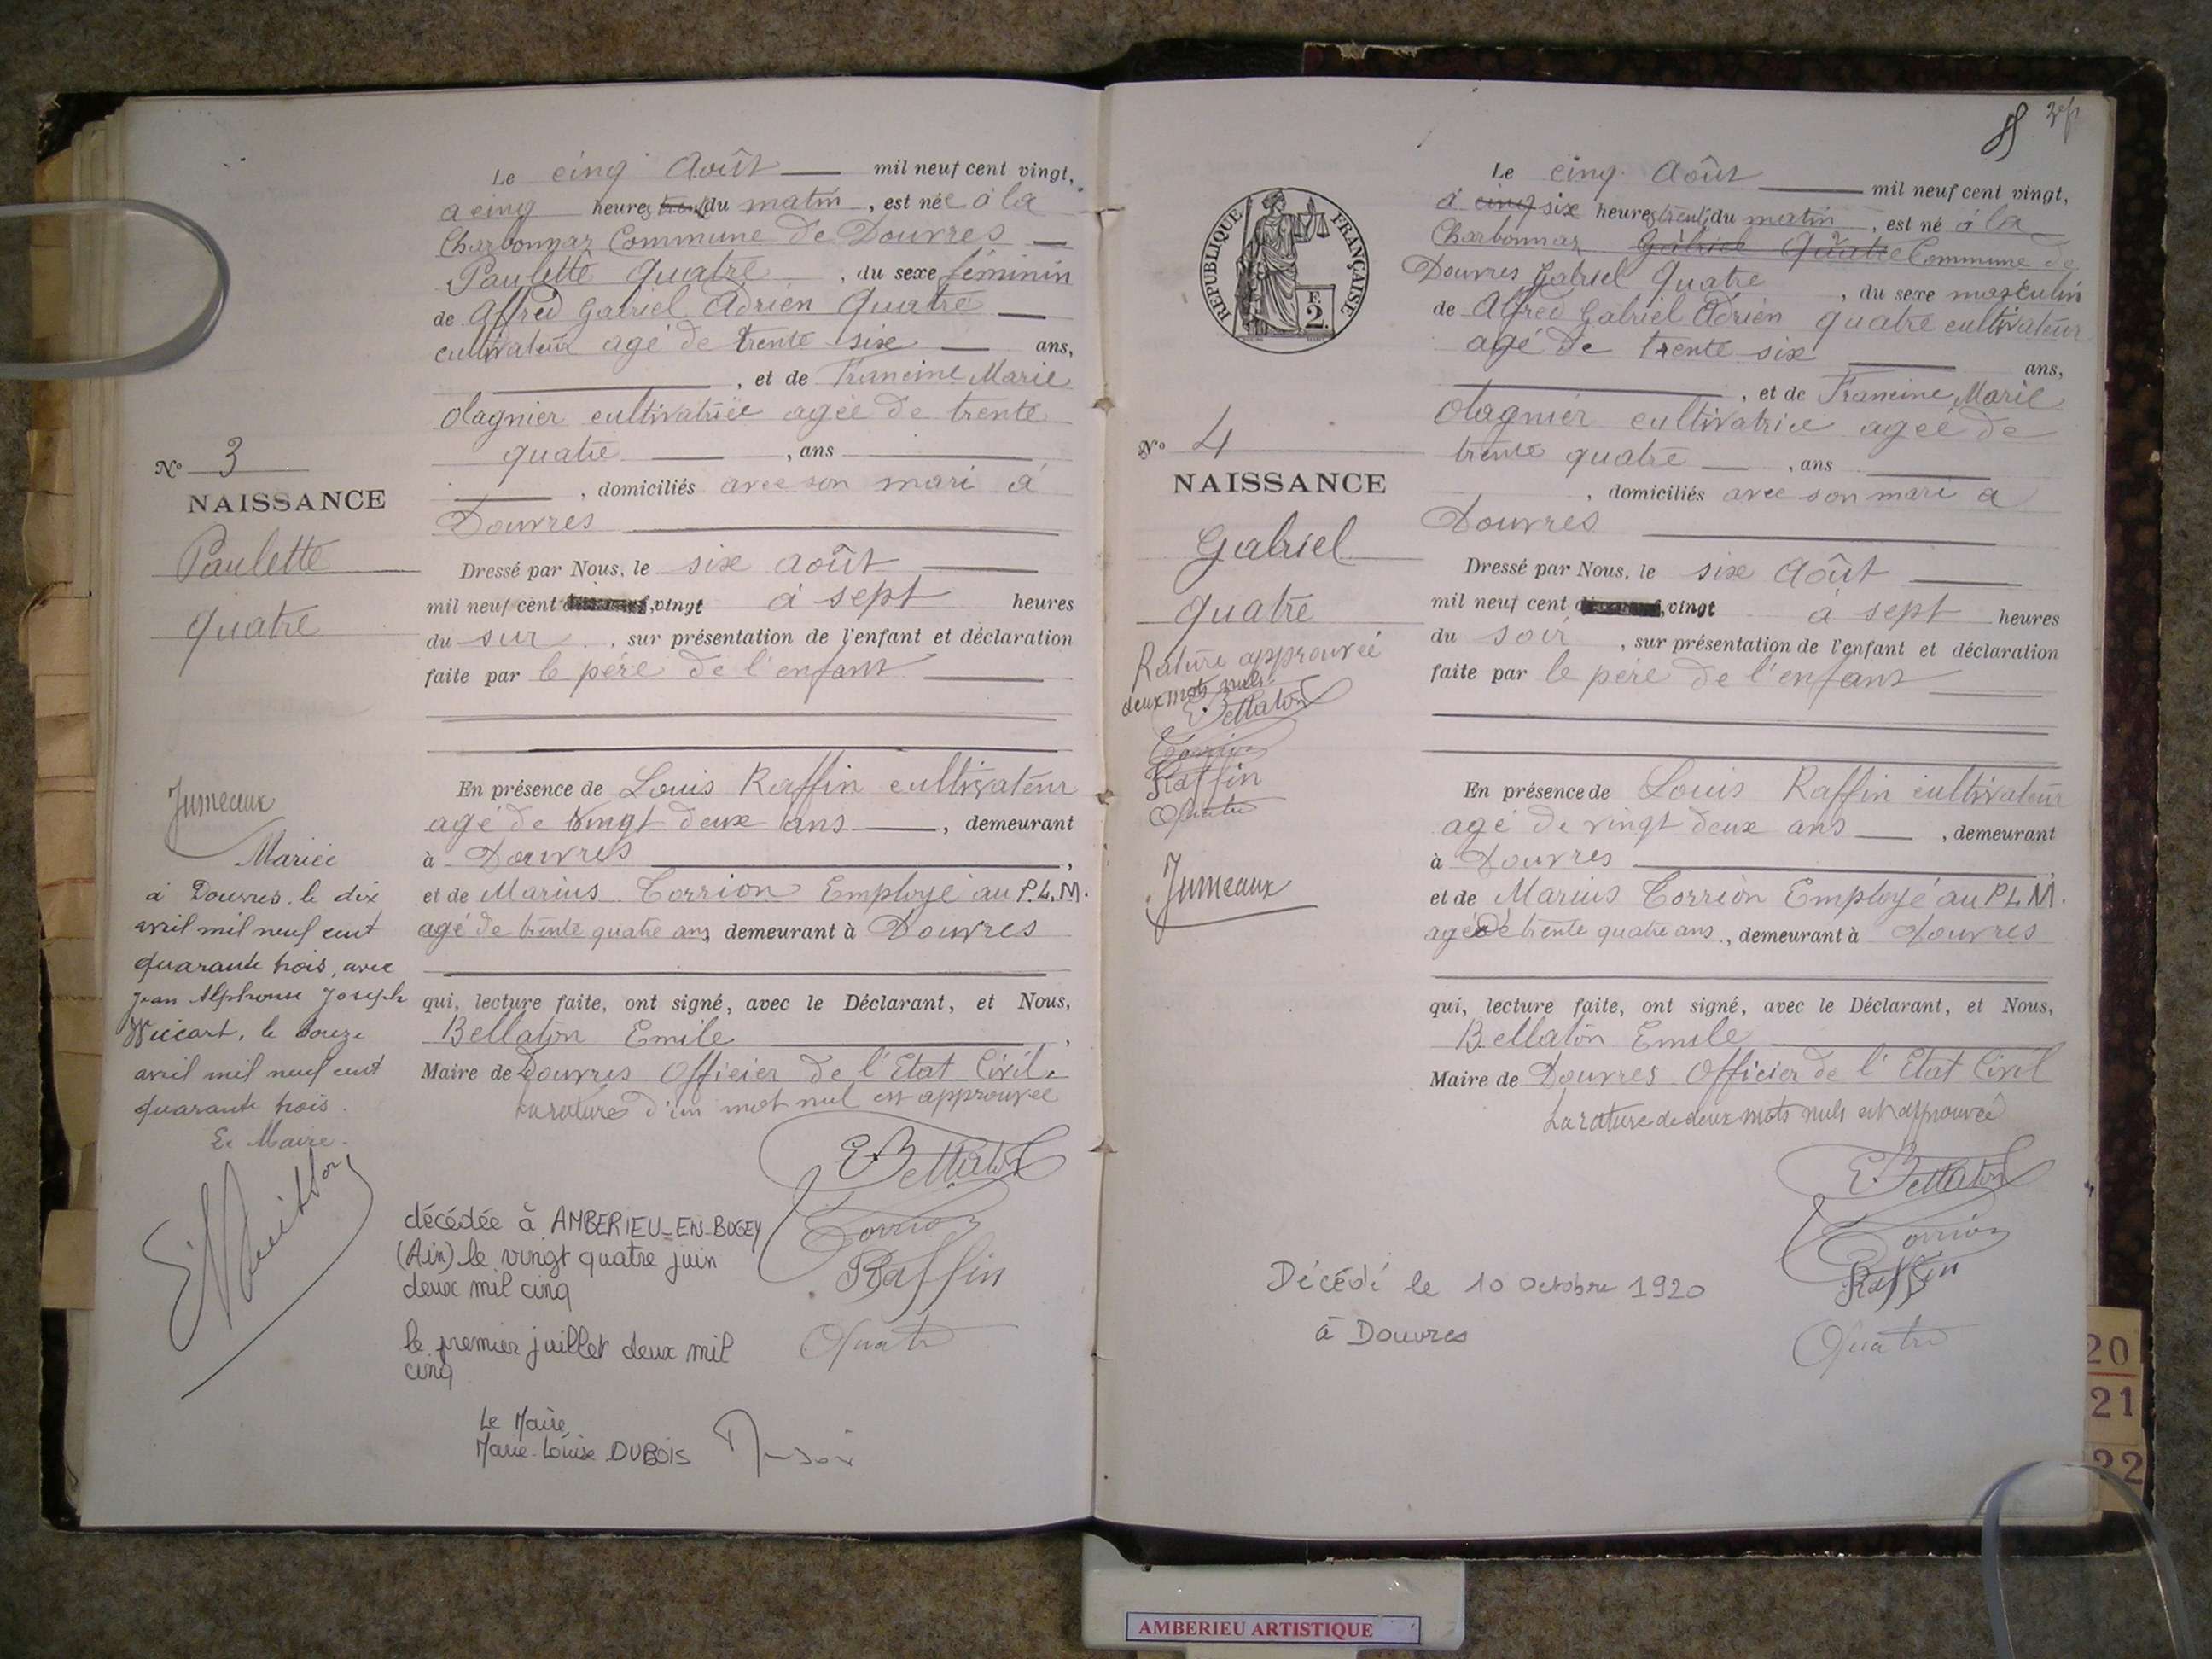 Le cinq Août mil neuf cent vingt,
a cinq heures du matin, est née à la
Charbonnaz Commune de Douvres
Paulette Quatre, du sexe féminin
de Alfred Gabriel Adrien Quatre
cultivateur agé de trente six ans,
, et de Francine Marie
Olagnier cultivatrice agée de trente
quatre, ans
, domiciliés avec son mari à
Douvres
Dressé par Nous, le six août
mil neuf cent vingt à sept heures
du sur, sur présentation de l'enfant et déclaration
faite par le père de l'enfant
En présence de Louis Raffin cultivateur
agé de vingt deux ans, demeurant
à Douvres,
et de Marius Corrion Employé au P.L.M.
agé de trente quatre ans, demeurant à Douvres
qui, lecture faite, ont signé, avec le Déclarant, et Nous,
Bellaton Emile,
Maire de Douvres Officier de l'Etat Civil.
La rature d'un mot nul est approuvée
E. Bellaton
Corrion
Raffin
Quatre
N° 3
NAISSANCE
Paulette
Quatre
Jumeaux
Mariée
à Douvres, le dix
avril mil neuf cent
quarante trois, avec
Jean Alphonse Joseph
le douze
avril mil neuf cent
quarante trois.
Le Maire.
décédée à AMBERIEU-EN-BUGEY
(Ain) le vingt quatre juin
deux mil cinq
le premier juillet deux mil
cinq
Le Maire,
Marie-Louise DUBOIS
REPUBLIQUE FRANÇAISE
F.
2.
Le cinq Août mil neuf cent vingt,
à cinq six heures trente du matin, est né à la
Charbonnaz Gabriel Quatre Commune de
Douvres Gabriel Quatre, du sexe masculin
de Alfred Gabriel Adrien quatre cultivateur
agé de trente six ans,
, et de Francine Marie
Olagnier cultivatrice agée de
trente quatre, ans
, domiciliés avec son mari a
Douvres
Dressé par Nous, le six Août
mil neuf cent vingt à sept heures
du soir, sur présentation de l'enfant et déclaration
faite par le père de l'enfant
En présence de Louis Raffin cultivateur
agé de vingt deux ans, demeurant
à Douvres
et de Marius Corrion Employé au P.L.M.
agé de trente quatre ans, demeurant à Douvres
qui, lecture faite, ont signé, avec le Déclarant, et Nous,
Bellaton Emile
Maire de Douvres Officier de l'Etat Civil
La rature de deux mots nuls est approuvée
E. Bellaton
Corrion
Raffin
Quatre
N° 4
NAISSANCE
Gabriel
quatre
Rature approuvée
deux mots nuls
E. Bellaton
Corrion
Raffin
Quatre
Jumeaux
Décédé le 10 Octobre 1920
à Douvres
20
21
22
AMBERIEU ARTISTIQUE